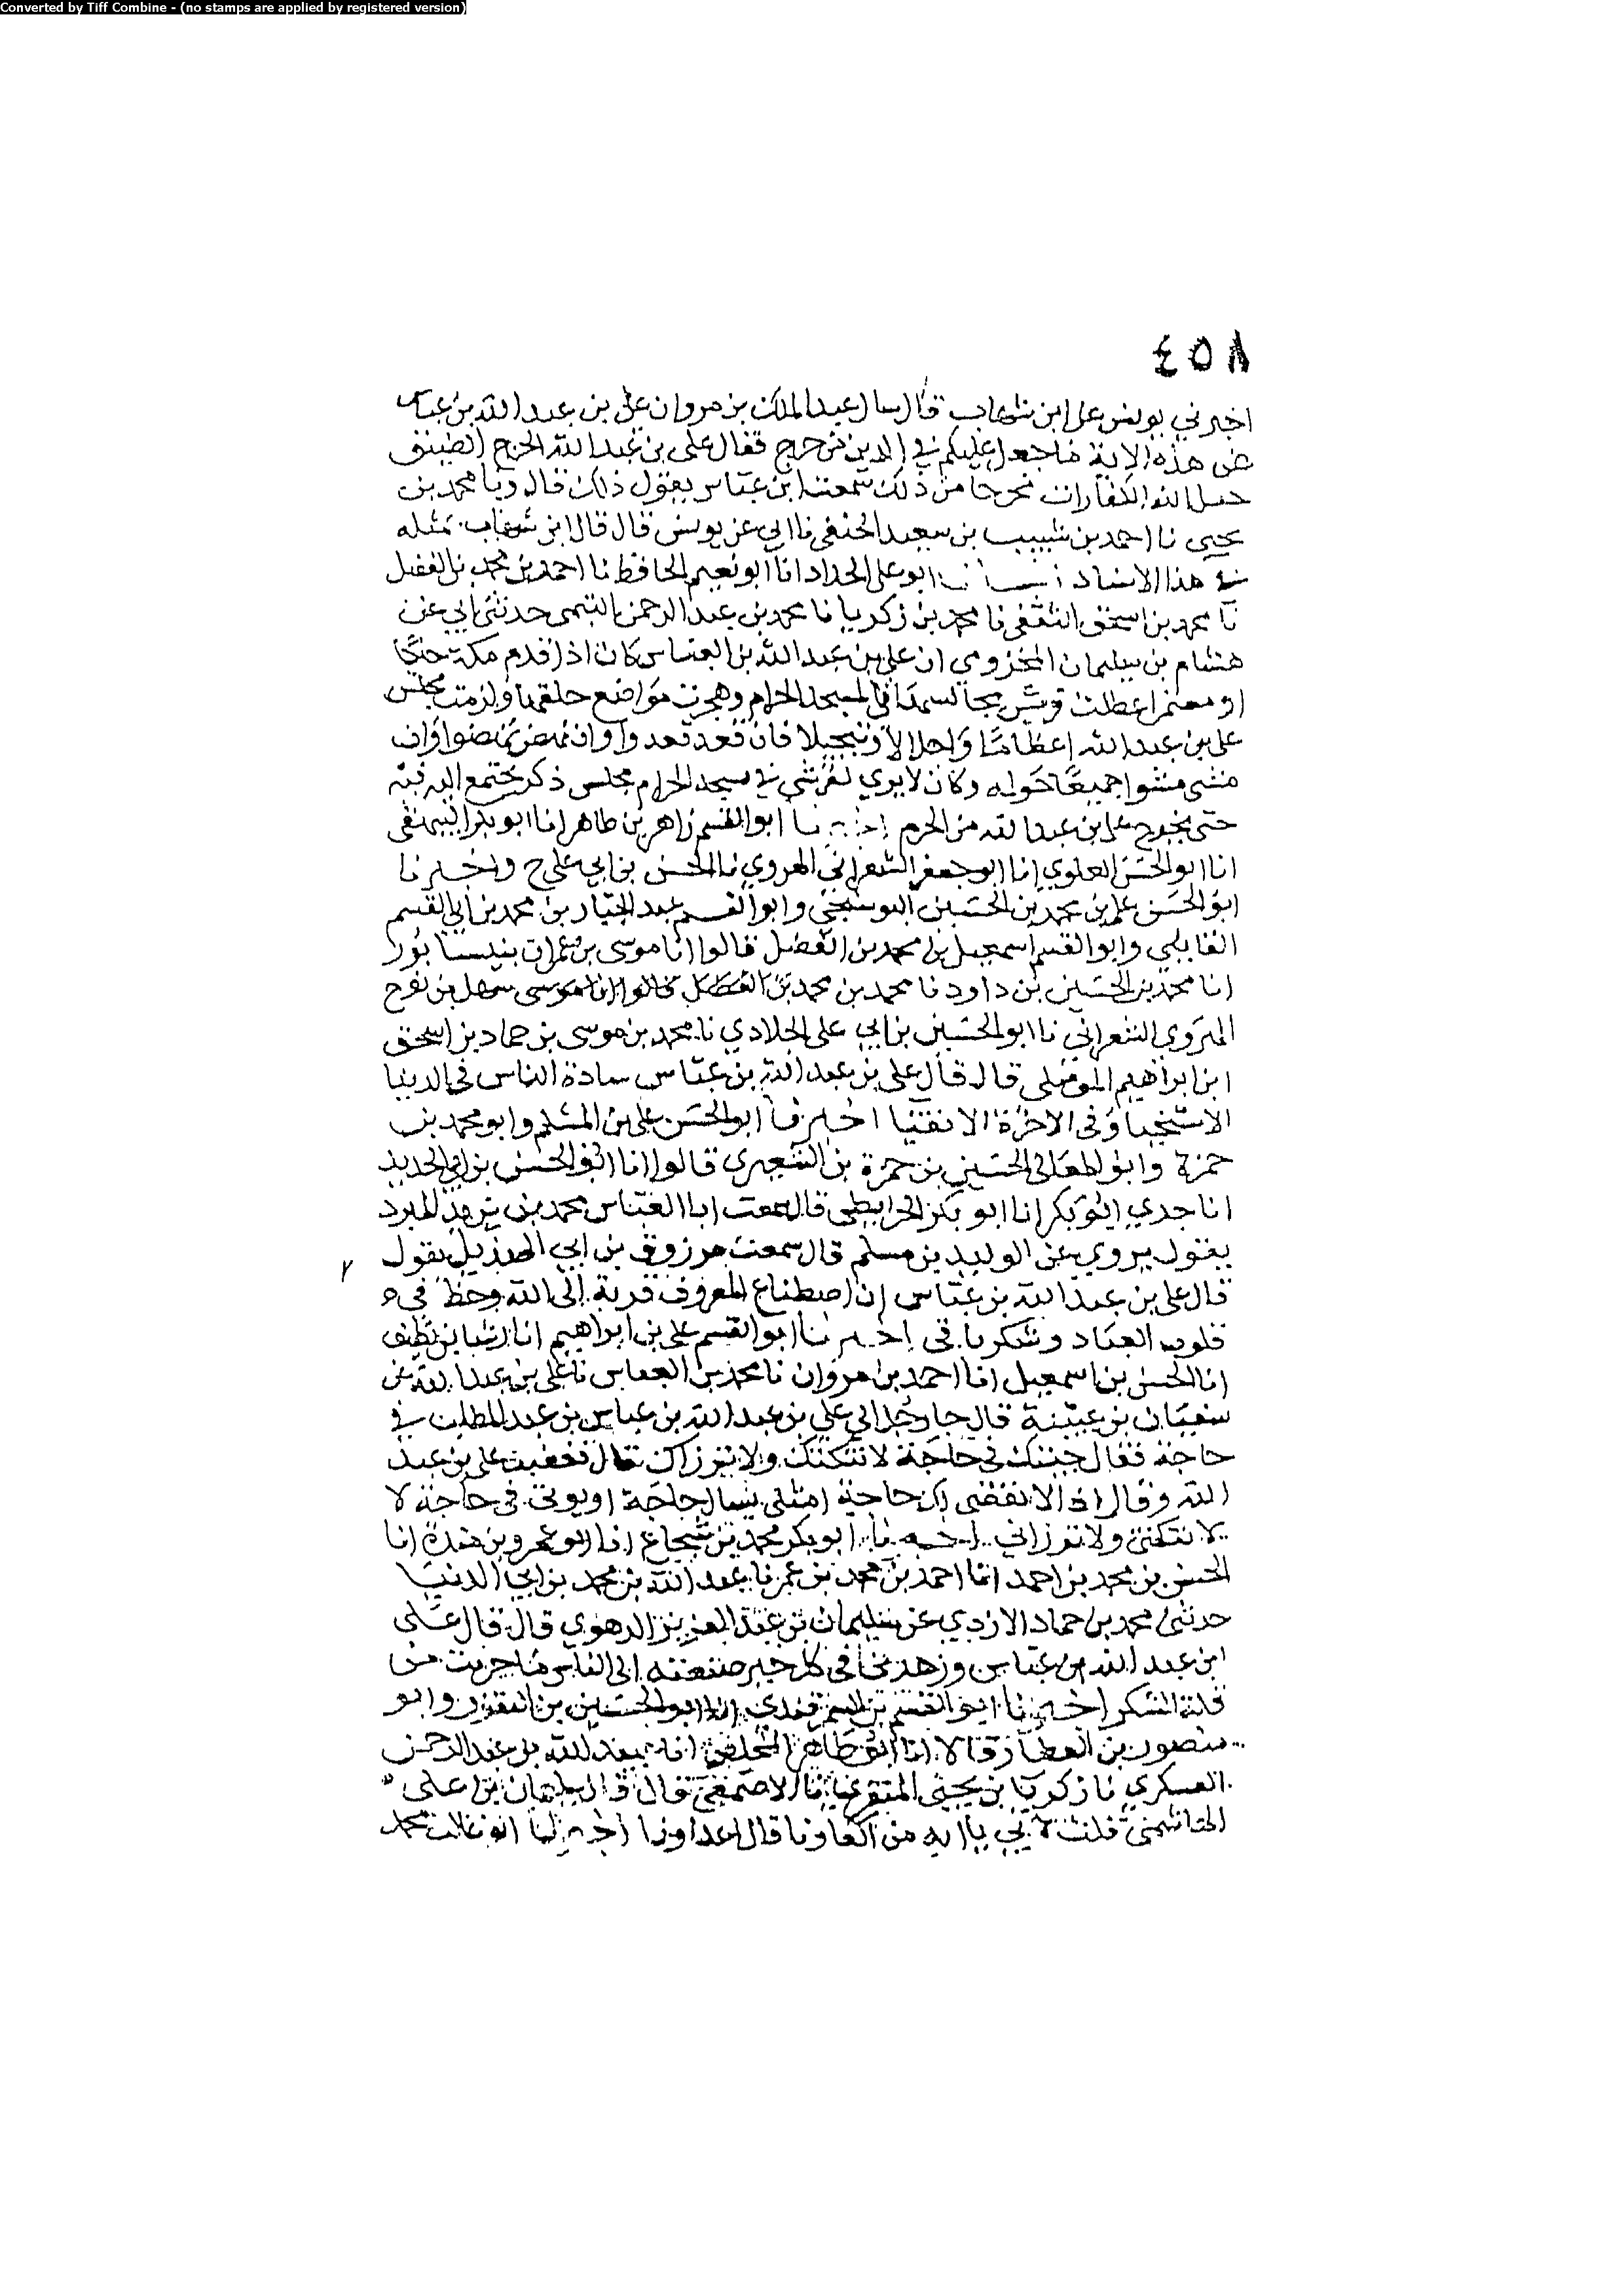 Converted by Tiff Combine - (no stamps are applied by registered version)
٤٥٨
اخبرني يونس عن ابن شهاب قال سال عبد الملك بن مروان علي بن عبد الله بن عباس
عن هذه الاية ما جعل عليكم في الدين من حرج فقال علي بن عبد الله الحرج الضيق
جعل الله الكفارات مخرجا من ذلك سمعت ابن عباس يقول ذلك قال ونا محمد بن
يحيى نا احمد بن شبيب بن سعيد الحنفي نا ابي عن يونس قال قال ابن شهاب بمثله
هذا الاسناد ابو علي الحداد انا ابو نعيم الحافظ نا احمد بن محمد بن الفضل
نا محمد بن اسحق الثقفي نا محمد بن زكريا نا محمد بن عبد الرحمن التيمي حدثني ابي عن
هشام بن سليمان المخزومي ان علي بن عبد الله بن العباس كان اذا قدم مكة حاجا
او معتمرا عطلت قريش مجالسها في المسجد الحرام وهجرت مواضع حلقها ولزمت مجلس
علي بن عبد الله اعظاما واجلالا وتبجيلا فان قعد قعدوا وان نهض نهضوا وان
مشى مشوا جميعا حوله وكان لا يرى لقرشي في مسجد الحرام مجلس ذكر يجتمع اليه فيه
حتى يخرج علي بن عبد الله من الحرم اخبرنا ابو القسم زاهر بن طاهر انا ابو بكر البيهقي
انا ابو الحسن العلوي انا ابو جعفر الشعراني الهروي نا الحسن بن ابي علي ح واخبرنا
ابو الحسن علي بن محمد بن الحسين البوشنجي وابو القسم عبد الجبار بن محمد بن ابي القسم
القايني وابو القسم اسمعيل بن محمد بن الفضل قالوا انا موسى بن عمران بنيسابور
انا محمد بن الحسين بن داود نا محمد بن محمد بن سهل بن نوح
الهروي الشعراني نا ابو الحسين بن ابي علي الخلادي نا محمد بن موسى بن حماد بن اسحق
ابن ابراهيم الموصلي قال قال علي بن عبد الله بن عباس سادة الناس في الدنيا
الاسخيا وفي الاخرة الاتقيا اخبرنا ابو الحسن علي بن المسلم وابو محمد بن
حمزة وابو المعالي الحسين بن حمزة بن الشعيري قالوا انا ابو الحسن بن ابي الحديد
انا جدي ابو بكر انا ابو بكر الخرايطي قال سمعت ابا العباس محمد بن يزيد المبرد
يقول يروي عن الوليد بن مسلم قال سمعت مرزوق بن ابي الهذيل يقول
قال علي بن عبد الله بن عباس ان اصطناع المعروف قربة الى الله وحظ في
قلوب العباد وشكر باقي اخبرنا ابو القسم علي بن ابراهيم انا رشا بن نظيف
انا الحسن بن اسمعيل انا احمد بن مروان نا محمد بن العباس نا علي بن عبد الله عن
سفيان بن عيينة قال جا رجل الى علي بن عبد الله بن عباس بن عبد المطلب في
حاجة فقال جيتك في حاجة لا تنكتك ولا ترزاك قال فغضب علي بن عبد
الله وقال اذا لا تقضى لك حاجة امثلي يسال حاجة او يوتى في حاجة لا
لا تنكتني ولا ترزاني اخبرنا ابو بكر محمد بن شجاع انا ابو عمرو بن مندة انا
الحسن بن محمد بن احمد انا احمد بن محمد بن عمر نا عبد الله بن محمد بن ابي الدنيا
حدثني محمد بن حماد الازدي عن سليمان بن عبد العزيز الزهري قال قال علي
ابن عبد الله بن عباس وزهدني في كل خير صنعته الى الناس ما جربت من
قلة الشكر اخبرنا ابو القسم بن السمرقندي انا ابو الحسين بن النقور وابو
منصور بن العطار قالا انا ابو طاهر المخلص انا عبيد الله بن عبد الرحمن
السكري نا زكريا بن يحيى المنقري نا الاصمعي قال قال سليمان بن علي
الهاشمي قلت لابي يا ابه من اكفاونا قال اعداونا اخبرنا ابو غالب محمد
٢